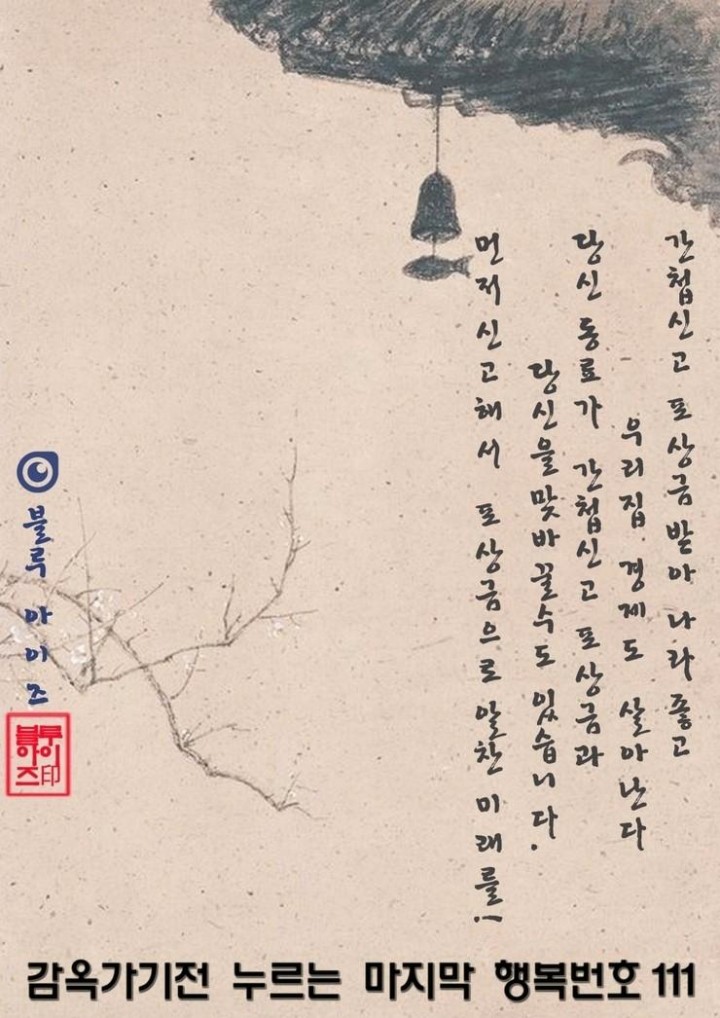 간첩신고 포상금 받아 나라 좋고
우리집 경제도 살아난다
당신 동료가 간첩신고 포상금과
당신을 맞바꿀수도 있습니다.
먼저 신고해서 포상금으로 알찬 미래를!
블루 아이즈
블루
아이
즈印
감옥가기전 누르는 마지막 행복번호 111